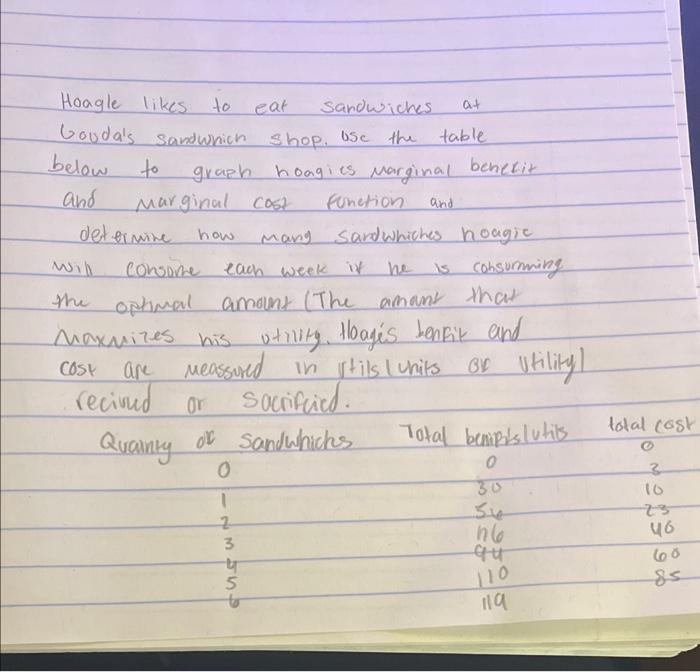 Hoagle likes to eat sandwiches at
Gouda's sandwhich shop. Use the table
below to graph hoagies Marginal benefit
and Marginal cost function and
determine how many sandwhiches hoagie
will consome each week if he is consumming
the optimal amount (The amount that
Maxmizes his utility. Hoagies benfit and
cost are meassured in utils (units of utility)
recived or sacrificied.
Quantity of sandwhichs Total benifits/utils total cost
0 0 0
1 30 3
2 54 10
3 76 23
4 94 40
5 110 60
6 119 85